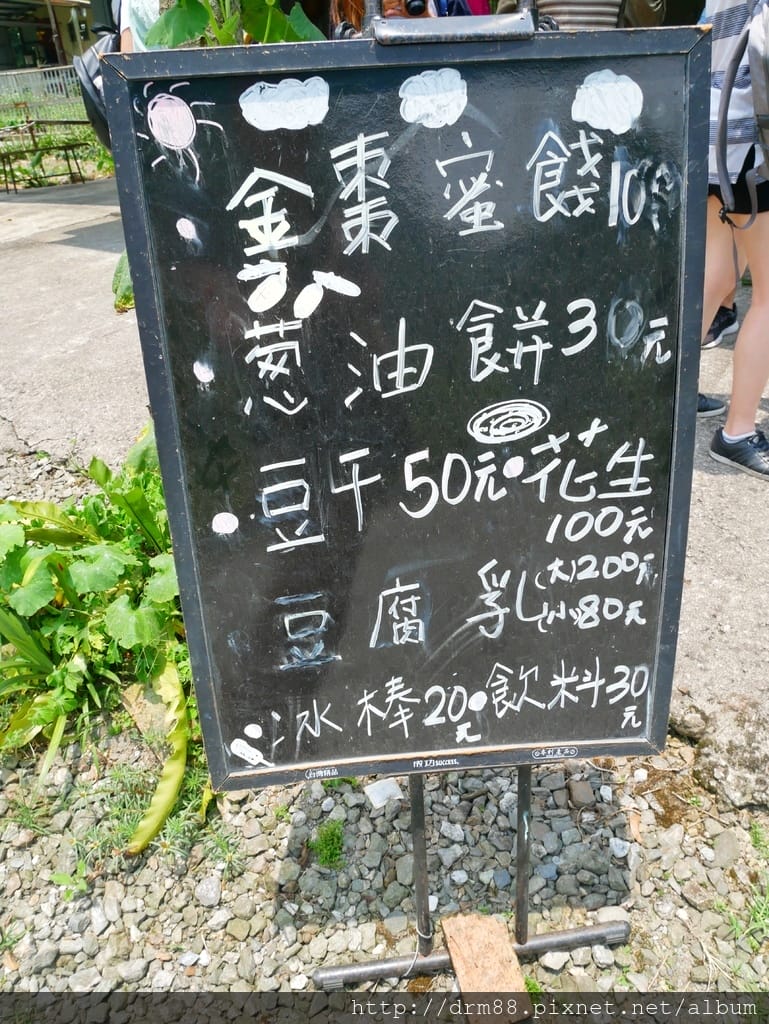 金棗蜜餞10
蔥油餅30元
豆干50元•花生
100元
豆腐乳(大)200元
(小)80元
冰棒20元•飲料30元
成功success.
http://drm88.pixnet.net/album